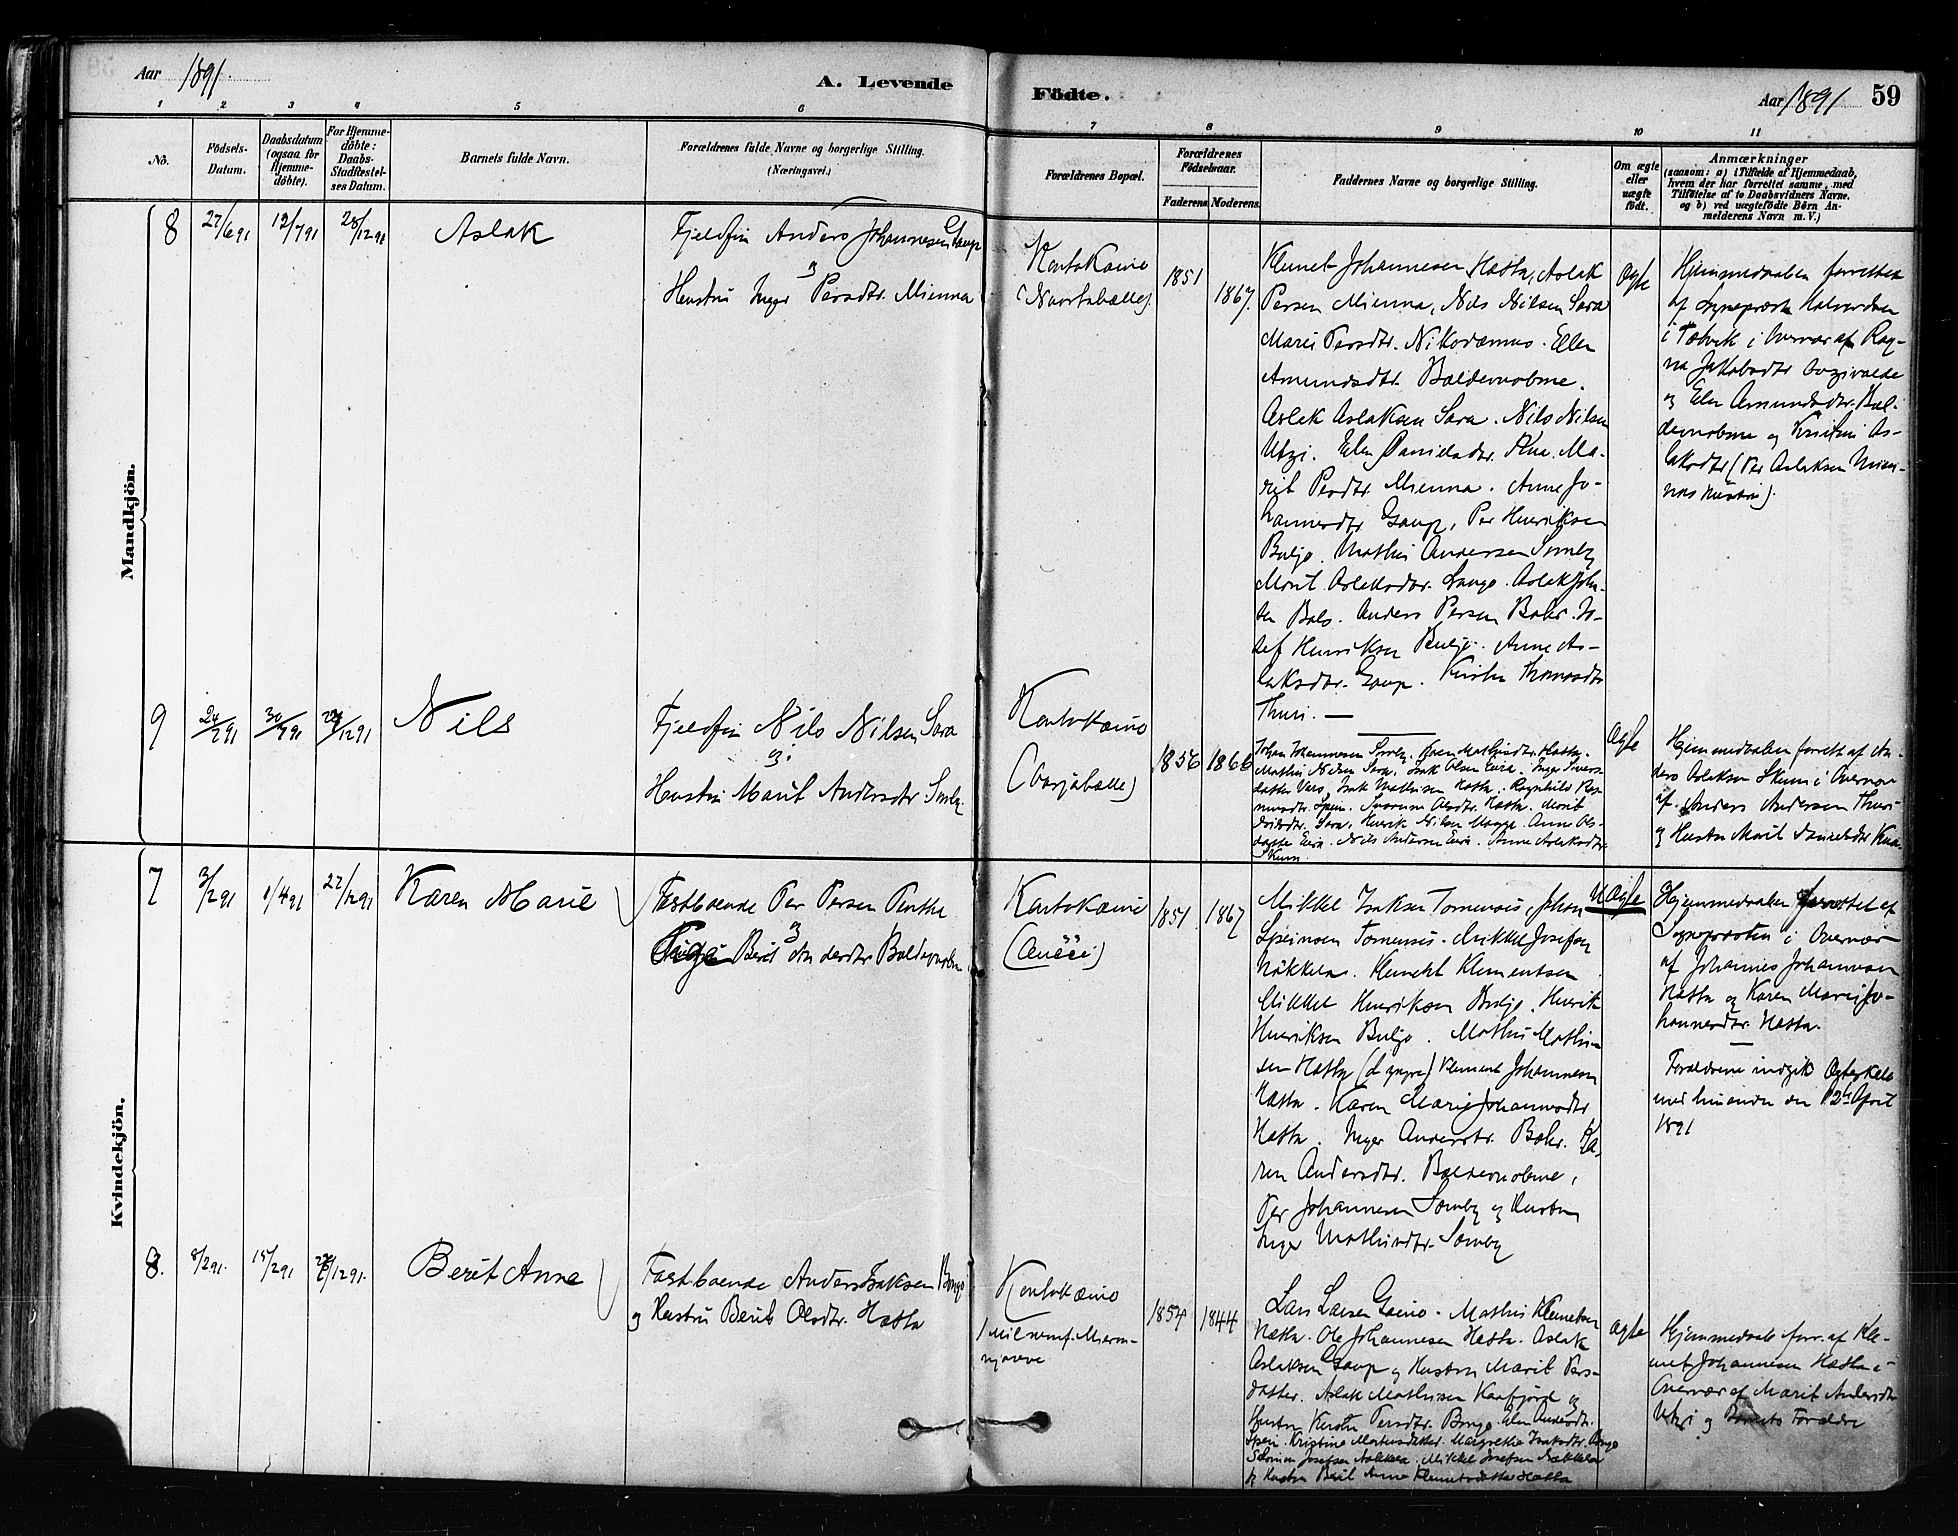 Aar 1891.
A. Levende
Födte.
Aar 1891
59
1 2 3 4 5 6 7 8 9 10 11
No.
Födsels-
Datum.
Daabsdatum
(ogsaa for
Hjemme-
döbte).
For Hjemme-
döbte:
Daabs-
Stadfæstel-
ses Datum.
Barnets fulde Navn.
Forældrenes fulde Navne og borgerlige Stilling.
(Næringsvei.)
Forældrenes Bopæl.
Forældrenes
Födselsaar.
Faderens
Moderens.
Faddernes Navne og borgerlige Stilling.
Om ægte
eller
uægte
födt.
Anmærkninger
(saasom: a) i Tilfælde af Hjemmedaab,
hvem der har forrettet samme, med
Tilföielse af to Daabsvidners Navne,
og b) ved uægtefödte Börn An-
melderens Navn m. V.)
Mandkjön.
8
27/6 91
12/7 91
28/12 91
Aslak
Fjeldfin Anders Johannesen Gaup
Hustru Inger Persdtr. Mienna
Kautokeino
1851
1867.
Klemet Johannesen Hætta, Aslak
Persen Mienna, Nils Nilsen Sara
Marie Persdtr. Nikodemus. Ellen
Amundsdtr. Baldevuobme.
Aslak Aslaksen Sara. Nils Nilsen
Utzi. Elen Danielsdtr.
rit Persdtr. Mienna. Anne Jo-
hannesdtr Gaup, Per Henriksen
Buljo. Mathis Andersen Somby
Marit Aslaksdtr.
Anders Persen Bahr. Jo-
sef Henriksen Buljo. Anne As-
laksdtr. Gaup. Kirsten Thomasdtr
Thuri.
Ægte
Hjemmedaaben forrettet
af Sognepræst Halvorsen
i Talvik i Overvær af Rag-
na Jakobsdtr
og Elen Amundsdtr. Bal-
devuobme og Kristine As-
laksdtr (Per Aslaksen Mien-
nas Hustru).
9
24/7 91
30/7 91
28/12 91
Nils
Fjeldfin Nils Nilsen Sara
og
Hustru Marit Andersdtr Somby.
Kautokeino
1856
1866
Johan Johannesen Somby. Mathisdtr. Hætta.
Mathis Nilsen Sara. Isak Olsen Eira. Inger Sivers-
datter Vars, Isak Mathisen Hætta. Ragnhild Ras-
musdtr. Spein. Susanne Olsdtr. Hætta. Marit
Nilsdtr. Sara. Henrik Nilsen Magga. Anne Ols-
datter Eira. Nils Andersen Eira. Anne Aslaksdtr.
Skum.
Ægte
Hjemmedaaben forrett. af An-
ders Aslaksen Skum i Overvær
af Anders Andersen Thuri
og Hustru Marit Danielsdtr
Kvindekjön.
7
3/2 91
1/4 91
27/12 91
Karen Marie
Fastboende Per Persen Pentha
og
Pige Berit Andersdtr Baldevuobme
Kautokeino
1851.
1867
Mikkel Isaksen Tornensis, Johan
Speinsen Tornensis. Mikkel Josefsen
Näkkela. Klemet Klementsen
Mikkel Henriksen Buljo. Henrik
Henriksen Buljo. Mathis Mathi-
sen Hætta (d. yngre) Klemet Johannesen
Hætta. Karen Marie Johannesdtr
Hætta. Inger Andersdtr. Bahr. Ka-
ren Andersdtr. Baldevuobme,
Per Johannesen Somby og Hustru
Inger Mathisdtr. Somby
Uægte
Hjemmedaaben forrettet af
Sognepræsten i Overvær
af Johannes Johannesen
Hætta og Karen Marie Jo-
hannesdtr. Hætta.
Forældrene indgik Ægteskab
med hinanden den 12te April
1891
8.
8/2 91.
15/2 91
28/12 91.
Berit Anne
Fastboende Anders Isaksen Bongo
og Hustru Berit Olsdtr. Hætta
Kautokeino
1854
1844
Lars Larsen Gaino. Mathis Klemetsen
Hætta. Ole Johannesen Hætta. Aslak
Aslaksen Gaup og Hustru Marit Pers-
datter. Aslak Mathisen Kaafjord og
Hustru Kirsten Persdtr. Bongo. Elen Andersdtr.
Spein. Kristine Mortensdatter. Margrethe Isaksdtr. Bongo
Salomon Josefsen Näkkela. Mikkel Josefsen Näkkela
og Hustru Berit Anne Klemetsdatter Hætta
Ægte
Hjemmedaab forr. af Kle-
met Johannesen Hætta i
Overvær af Marit Andersdtr
Utzi og Barnets Forældre